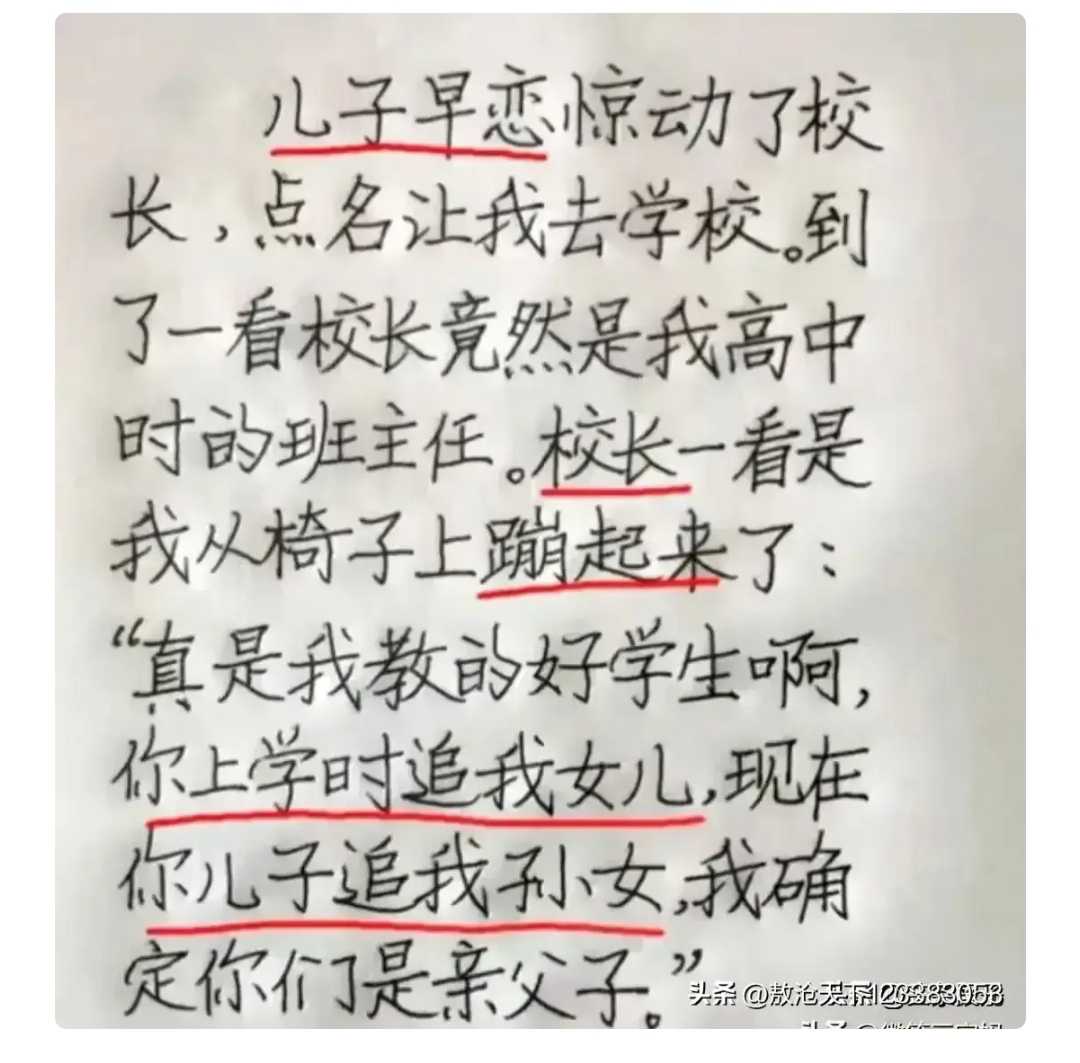 儿子早恋惊动了校
长，点名让我去学校。到
了一看校长竟然是我高中
时的班主任。校长一看是
我从椅子上蹦起来了：
“真是我教的好学生啊，
你上学时追我女儿，现在
你儿子追我孙女，我确
定你们是亲父子。”
头条 @敖沧天